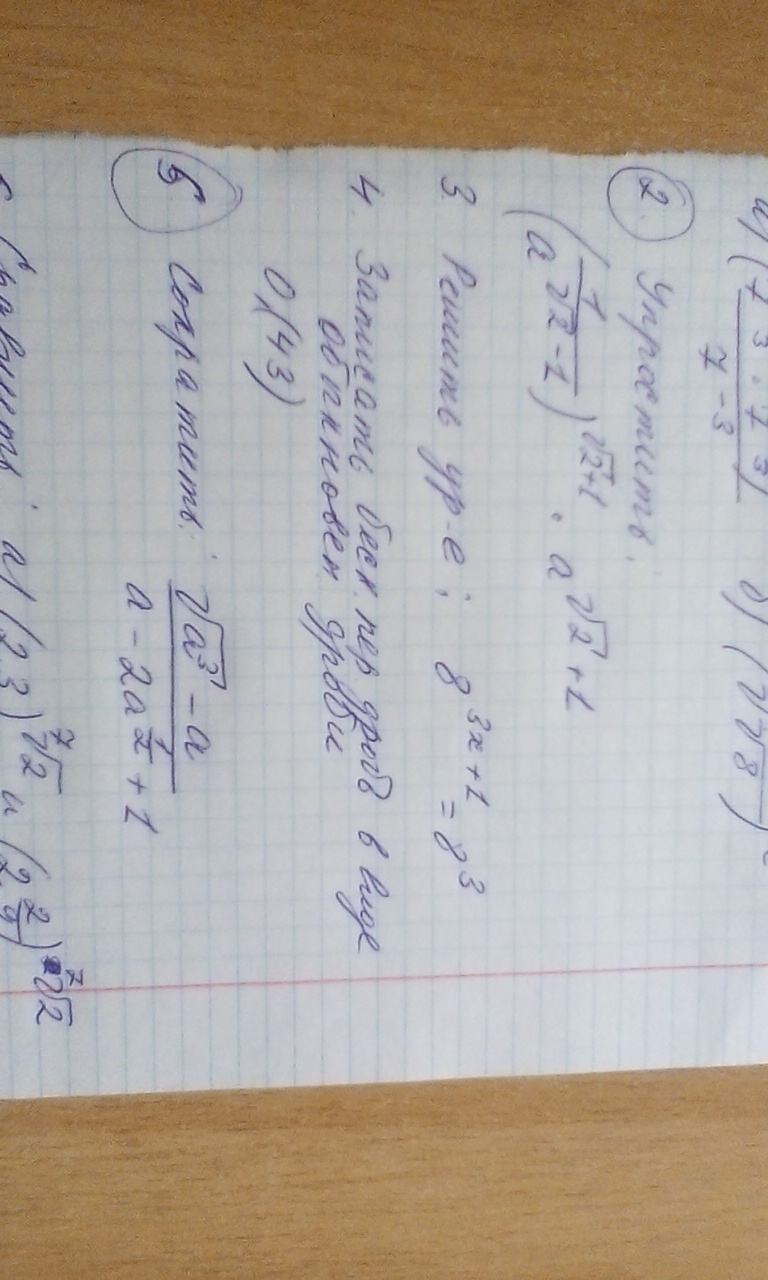 а) (7³ · 7³) / 7⁻³ б) (√√8)
2. Упростить:
(a^(1/(√2-1)))^(√2+1) · a^(√2+1)
3. Решить ур-е: 8^(3x+1) = 8³
4. Записать беск. пер. дробь в виде
обыкновен. дроби
0,(43)
5 Сократить: (√a³ - a) / (a - 2a^(1/2) + 1)
Сравнить: а) (2,3)^(⁷√2) и (2 2/9)^(⁷√2)